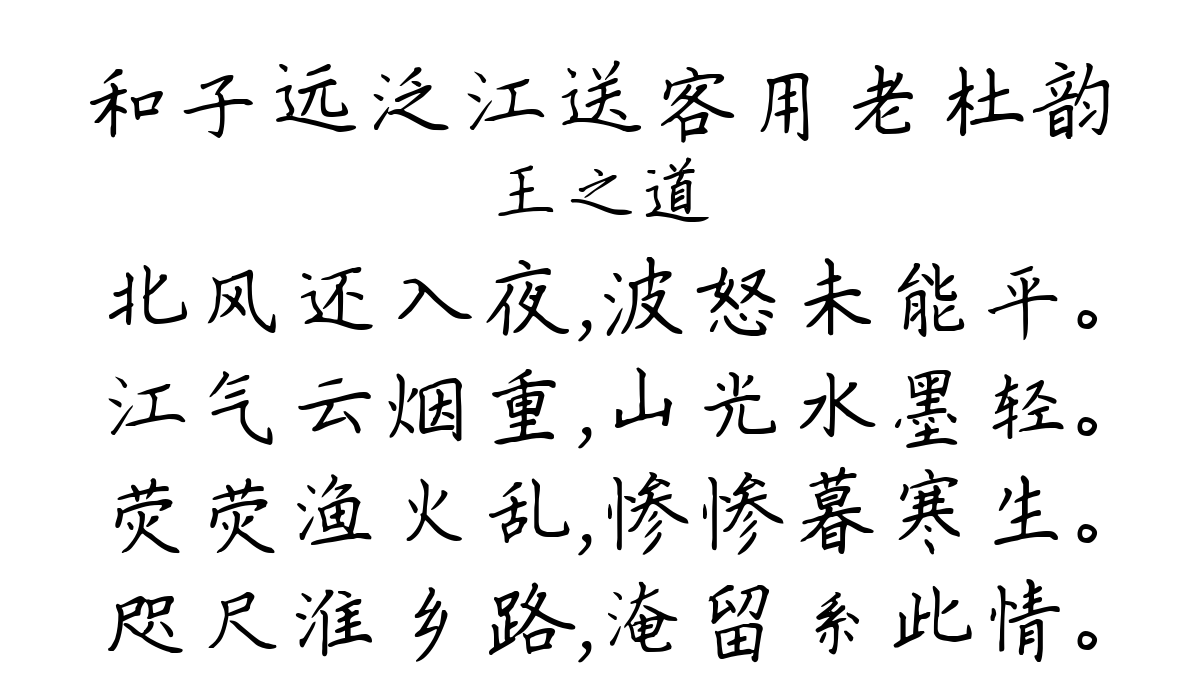 和子远泛江送客用老杜韵
王之道
北风还入夜,波怒未能平。
江气云烟重,山光水墨轻。
荧荧渔火乱,惨惨暮寒生。
咫尺淮乡路,淹留系此情。